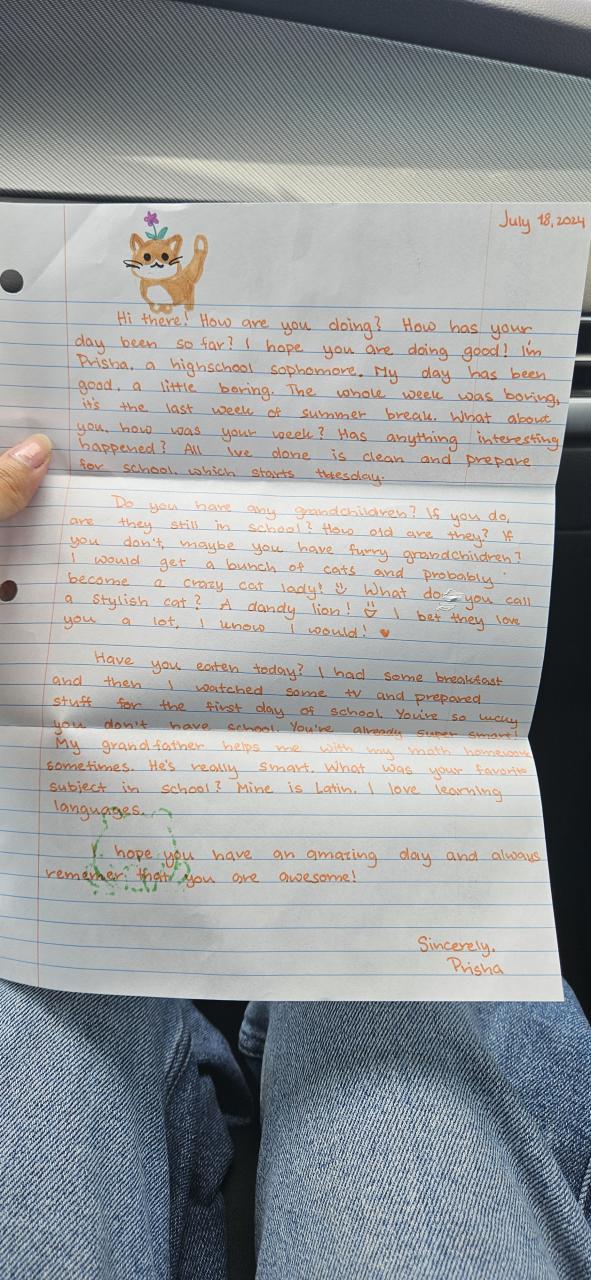 July 18, 2024
Hi there! How are you doing? How has your
day been so far? I hope you are doing good! I'm
Prisha, a highschool sophomore. My day has been
good, a little boring. The whole week was boring,
it's the last week of summer break. What about
you, how was your week? Has anything interesting
happened? All I've done is clean and prepare
for school, which starts tuesday.
Do you have any grandchildren? If you do,
are they still in school? How old are they? If
you don't, maybe you have furry grandchildren?
I would get a bunch of cats and probably
become a crazy cat lady! What do you call
a stylish cat? A dandy lion! I bet they love
you a lot, I know I would!
Have you eaten today? I had some breakfast
and then I watched some tv and prepared
stuff for the first day of school. You're so lucky
you don't have school. You're already super smart!
My grandfather helps me with my math homework
sometimes. He's really smart. What was your favorite
subject in school? Mine is Latin. I love learning
languages.
I hope you have an amazing day and always
rememher that you are awesome!
Sincerely,
Prisha